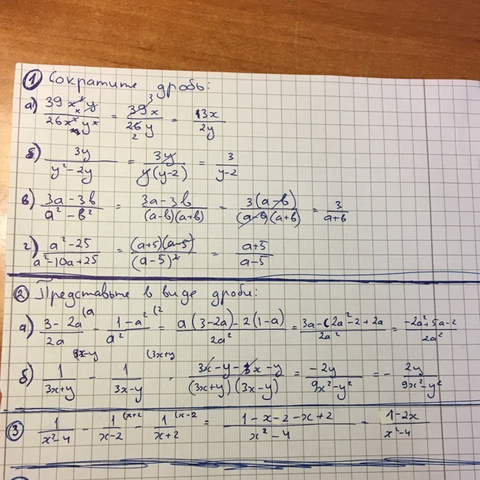 ① Сократите дробь:
а) 39x³y / 26x²y² = 39x / 26y = 3x / 2y
б) 3y / y²-2y = 3y / y(y-2) = 3 / y-2
в) 3a-3b / a²-b² = 3a-3b / (a-b)(a+b) = 3(a-b) / (a-b)(a+b) = 3 / a+b
г) a²-25 / a²-10a+25 = (a+5)(a-5) / (a-5)² = a+5 / a-5
② Представьте в виде дроби:
а) 3-2a / 2a (a - 1-a² / a² (2 = a(3-2a)-2(1-a) / 2a² = 3a-2a²-2+2a / 2a² = -2a²+5a-2 / 2a²
б) 1 / 3x+y - 1 / 3x-y (3x+y = 3x-y-3x-y / (3x+y)(3x-y) = -2y / 9x²-y² = - 2y / 9x²-y²
③ 1 / x²-4 - 1 / x-2 (x+2 - 1 / x+2 (x-2 = 1-x-2-x+2 / x²-4 = 1-2x / x²-4